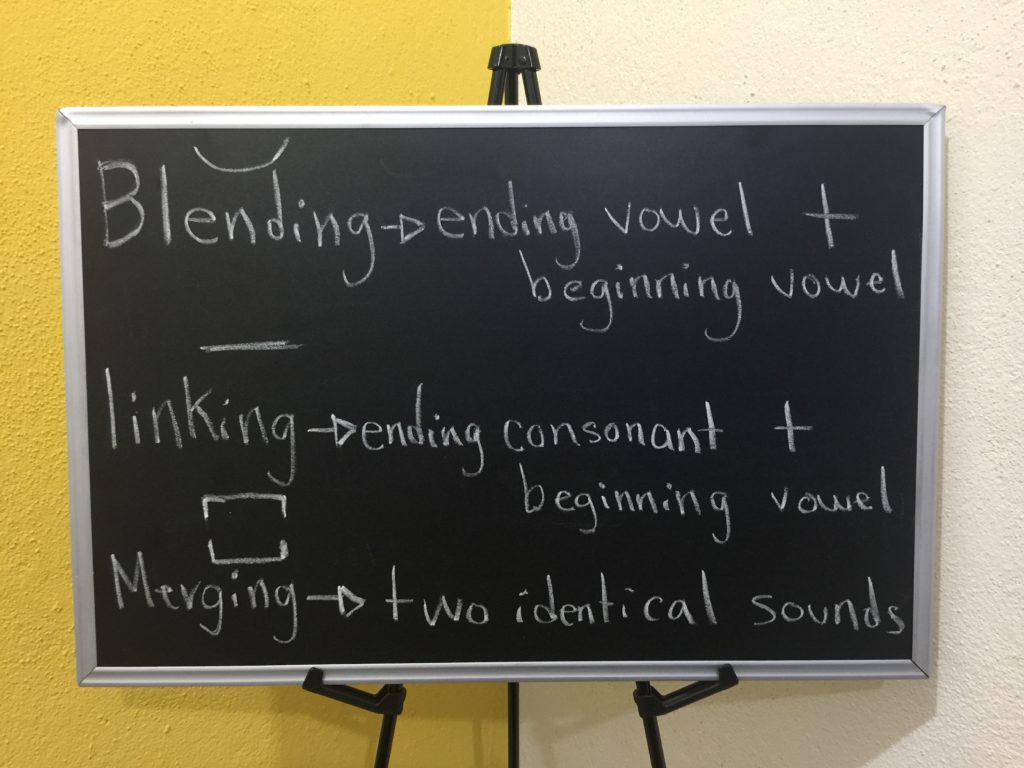 Blending→ending vowel +
beginning vowel
linking→ending consonant +
beginning vowel
Merging→two identical sounds